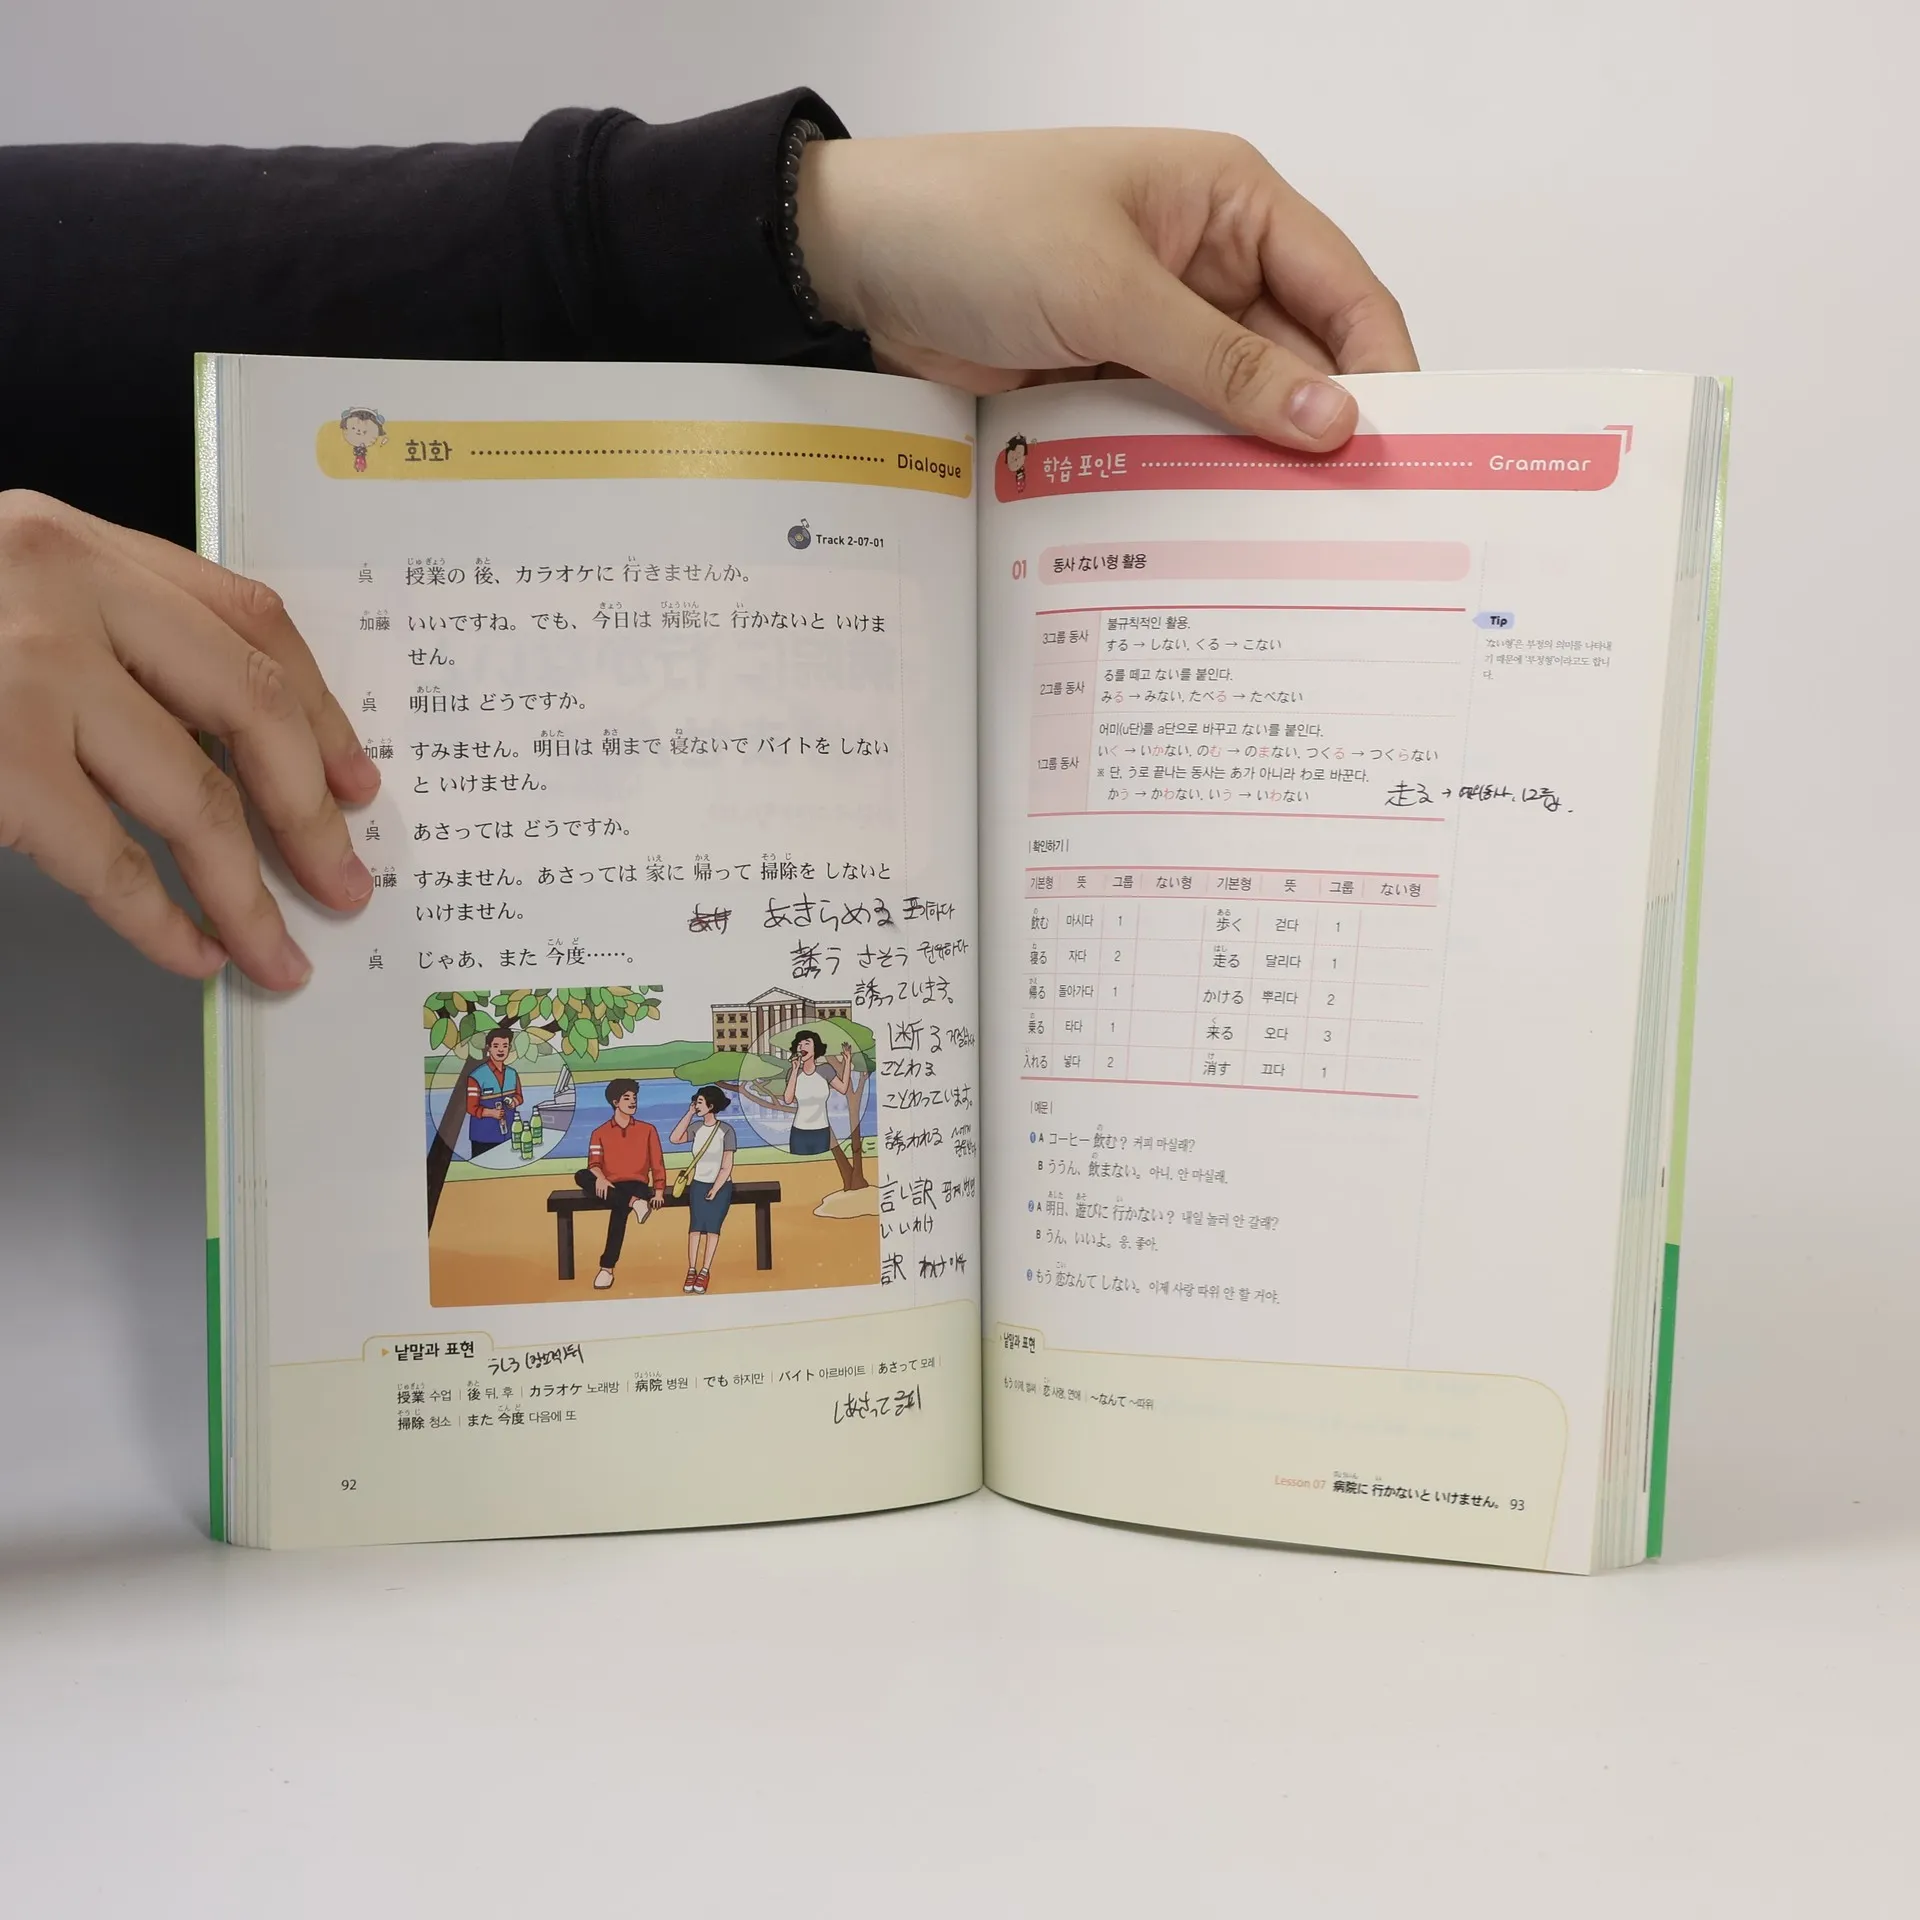 회화 Dialogue
Track 2-07-01
呉 授業の 後、カラオケに 行きませんか。
加藤 いいですね。でも、今日は 病院に 行かないと いけま
せん。
呉 明日は どうですか。
加藤 すみません。明日は 朝まで 寝ないで バイトを しない
と いけません。
呉 あさっては どうですか。
加藤 すみません。あさっては 家に 帰って 掃除を しないと
いけません。
あきらめる 포기하다
呉 じゃあ、また 今度……。
誘う さそう 권유하다
誘っています。
断る 거절하다
ことわる
ことわっています。
誘われる
言い訳
いいわけ
訳 わけ 이유
낱말과 표현
うしろ
授業 수업 | 後 뒤, 후 | カラオケ 노래방 | 病院 병원 | でも 하지만 | バイト 아르바이트 | あさって 모레 |
掃除 청소 | また 今度 다음에 또
しあさって 글피
92
학습 포인트 Grammar
01 동사 ない형 활용
3그룹 동사 불규칙적인 활용.
する → しない, くる → こない
2그룹 동사 る를 떼고 ない를 붙인다.
みる → みない, たべる → たべない
1그룹 동사 어미(u단)를 a단으로 바꾸고 ない를 붙인다.
いく → いかない, のむ → のまない, つくる → つくらない
※ 단, う로 끝나는 동사는 あ가 아니라 わ로 바꾼다.
かう → かわない, いう → いわない
走る →
Tip
'ない형'은 부정의 의미를 나타내
기 때문에 '부정형'이라고도 합니
다.
| 확인하기 |
기본형 뜻 그룹 ない형 기본형 뜻 그룹 ない형
飲む 마시다 1 歩く 걷다 1
寝る 자다 2 走る 달리다 1
帰る 돌아가다 1 かける 뿌리다 2
乗る 타다 1 来る 오다 3
入れる 넣다 2 消す 끄다 1
| 예문 |
❶ A コーヒー 飲む？ 커피 마실래?
B ううん、飲まない。 아니, 안 마실래.
❷ A 明日、遊びに 行かない？ 내일 놀러 안 갈래?
B うん、いいよ。 응, 좋아.
❸ もう 恋なんて しない。 이제 사랑 따위 안 할 거야.
낱말과 표현
もう 이제, 벌써 | 恋 사랑, 연애 | ～なんて ~따위
Lesson 07 病院に 行かないと いけません。 93